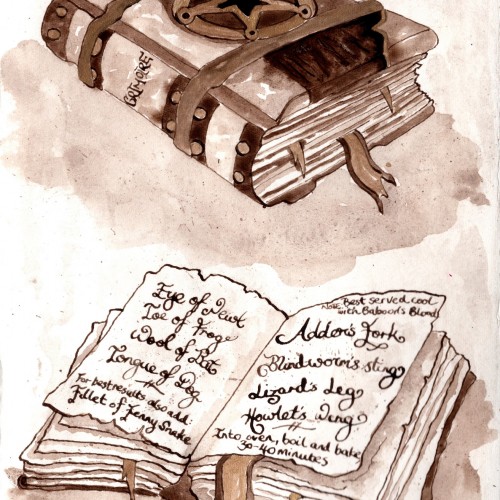 GRIMOIRE
Eye of Newt
Toe of Froge
Wool of Bat
Tongue of Dog
For best results also add:
Fillet of Fenny Snake
Note: Best served cool
with Baboon's Blood
Adder's Fork
Blindworm's sting
Lizard's Leg
Howlet's Wing
Into oven, boil and bake
30-40 minutes